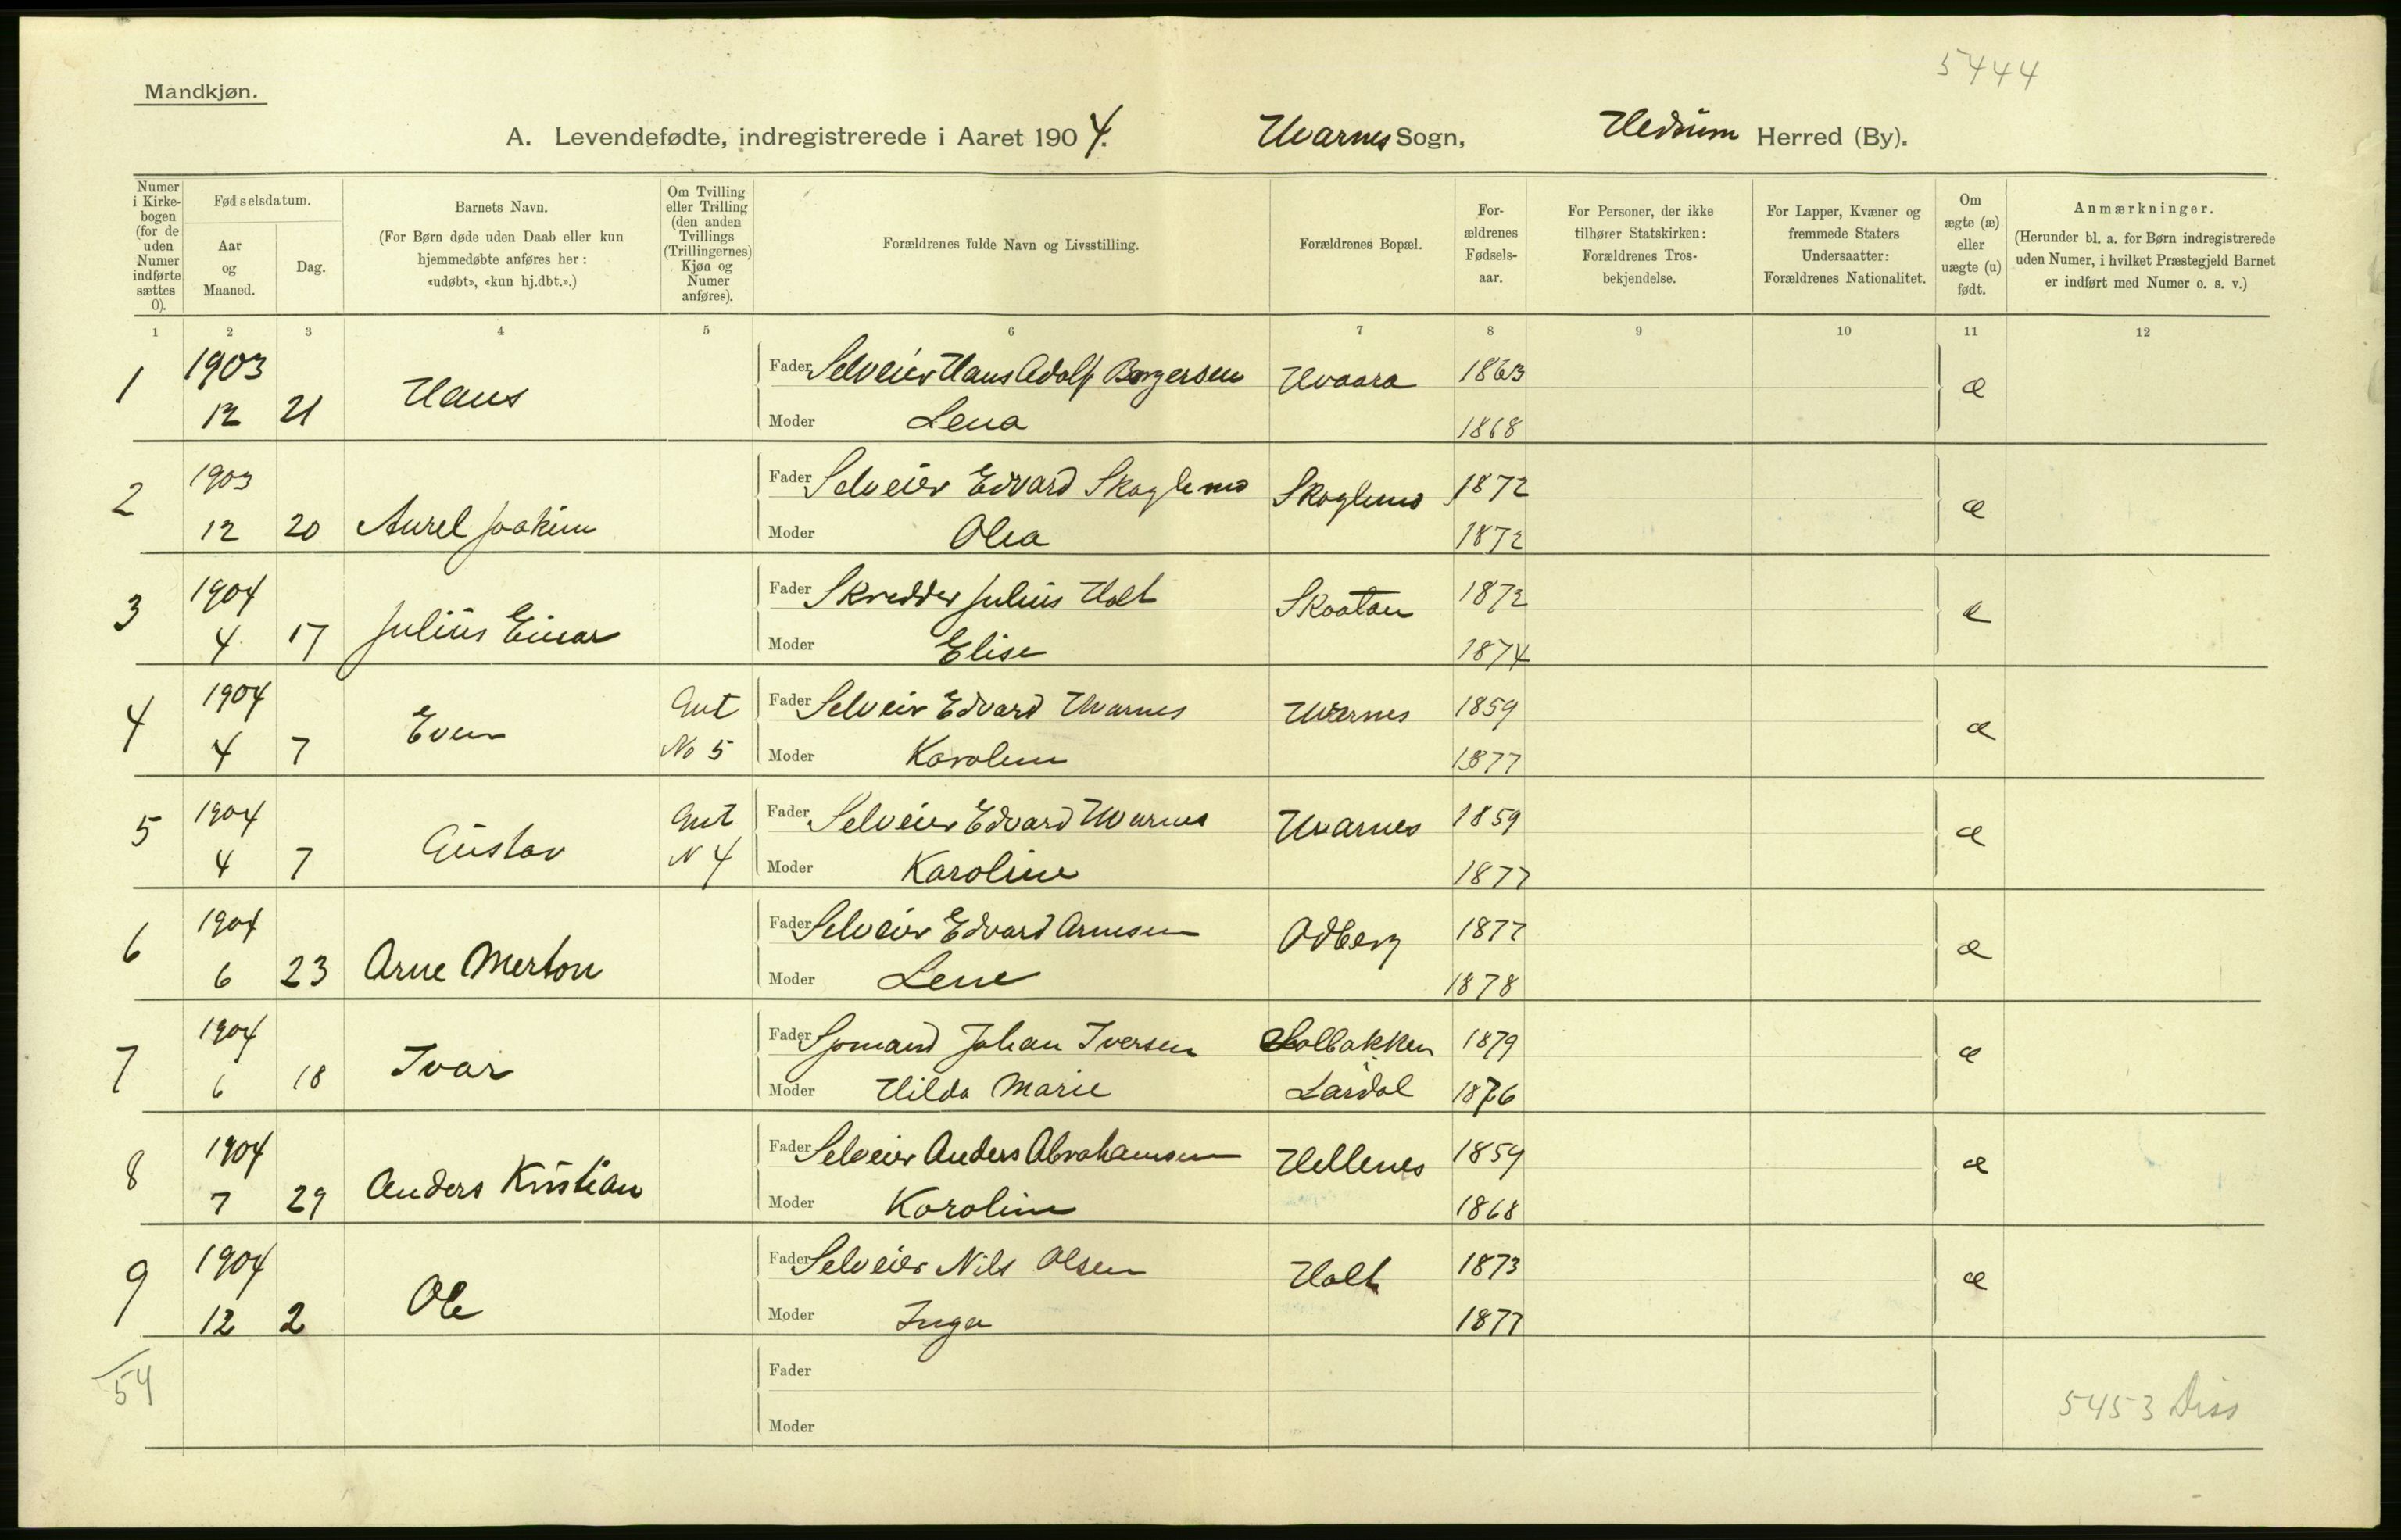 5444
Mandkjøn.
A. Levendefødte, indregistrerede i Aaret 1904. Hvarnes Sogn, Hedrum Herred (By).
Numer i Kirke-bogen (for de uden Numer indførte sættes 0).
Fødselsdatum.
Aar og Maaned.
Dag.
Barnets Navn.
(For Børn døde uden Daab eller kun hjemmedøbte anføres her: «udøbt», «kun hj.dbt.».)
Om Tvilling eller Trilling (den anden Tvillings (Trillingernes) Kjøn og Numer anføres).
Forældrenes fulde Navn og Livsstilling.
Forældrenes Bopæl.
For-ældrenes Fødsels-aar.
For Personer, der ikke tilhører Statskirken: Forældrenes Tros-bekjendelse.
For Lapper, Kvæner og fremmede Staters Undersaatter: Forældrenes Nationalitet.
Om ægte (æ) eller uægte (u) født.
Anmærkninger.
(Herunder bl. a. for Børn indregistrerede uden Numer, i hvilket Præstegjeld Barnet er indført med Numer o. s. v.)
1 2 3 4 5 6 7 8 9 10 11 12
1 1903 Hans Fader Selveier Hans Adolf Borgersen Hvaara 1863 æ
12 21 Moder Lena 1868
2 1903 Fader Selveier Edvard Skoglund Skoglund 1872 æ
12 20 Aurel Joakim Moder Olea 1872
3 1904 Fader Skredder Julius Holt Skaatan 1872 æ
4 17 Julius Einar Moder Elise 1874
4 1904 Even Gut Fader Selveier Edvard Hvarnes Hvarnes 1859 æ
4 7 No 5 Moder Karoline 1877
5 1904 Gustav Gut Fader Selveier Edvard Hvarnes Hvarnes 1859 æ
4 7 N 4 Moder Karoline 1877
6 1904 Fader Selveier Edvard Arnesen Odberg 1877 æ
6 23 Arne Merton Moder Lene 1878
7 1904 Ivar Fader Sjømand Johan Iversen Holbakken 1879 æ
6 18 Moder Hilda Marie Lardal 1876
8 1904 Fader Selveier Anders Abrahamsen Hellenes 1859 æ
7 29 Anders Kristian Moder Karoline 1868
9 1904 Ole Fader Selveier Nils Olsen Holt 1873 æ
12 2 Moder Inga 1877
54 Fader
Moder
5453 Diss